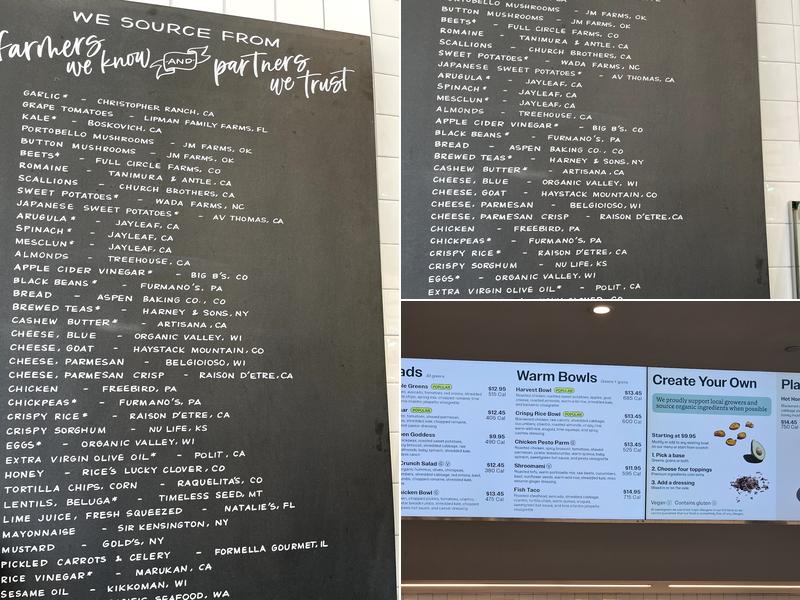 WE SOURCE FROM
farmers we know AND partners we trust
GARLIC* - CHRISTOPHER RANCH, CA
GRAPE TOMATOES - LIPMAN FAMILY FARMS, FL
KALE* - BOSKOVICH, CA
PORTOBELLO MUSHROOMS - JM FARMS, OK
BUTTON MUSHROOMS - JM FARMS, OK
BEETS* - FULL CIRCLE FARMS, CO
ROMAINE - TANIMURA & ANTLE, CA
SCALLIONS - CHURCH BROTHERS, CA
SWEET POTATOES* - WADA FARMS, NC
JAPANESE SWEET POTATOES* - AV THOMAS, CA
ARUGULA* - JAYLEAF, CA
SPINACH* - JAYLEAF, CA
MESCLUN* - JAYLEAF, CA
ALMONDS - TREEHOUSE, CA
APPLE CIDER VINEGAR* - BIG B'S, CO
BLACK BEANS* - FURMANO'S, PA
BREAD - ASPEN BAKING CO., CO
BREWED TEAS* - HARNEY & SONS, NY
CASHEW BUTTER* - ARTISANA, CA
CHEESE, BLUE - ORGANIC VALLEY, WI
CHEESE, GOAT - HAYSTACK MOUNTAIN, CO
CHEESE, PARMESAN - BELGIOIOSO, WI
CHEESE, PARMESAN CRISP - RAISON D'ETRE, CA
CHICKEN - FREEBIRD, PA
CHICKPEAS* - FURMANO'S, PA
CRISPY RICE* - RAISON D'ETRE, CA
CRISPY SORGHUM - NU LIFE, KS
EGGS* - ORGANIC VALLEY, WI
EXTRA VIRGIN OLIVE OIL* - POLIT, CA
HONEY - RICE'S LUCKY CLOVER, CO
TORTILLA CHIPS, CORN - RAQUELITA'S, CO
LENTILS, BELUGA* - TIMELESS SEED, MT
LIME JUICE, FRESH SQUEEZED - NATALIE'S, FL
MAYONNAISE - SIR KENSINGTON, NY
MUSTARD - GOLD'S, NY
PICKLED CARROTS & CELERY - FORMELLA GOURMET, IL
RICE VINEGAR* - MARUKAN, CA
SESAME OIL - KIKKOMAN, WI
SEAFOOD, WA
BUTTON MUSHROOMS - JM FARMS, OK
BEETS* - FULL CIRCLE FARMS, CO
ROMAINE - TANIMURA & ANTLE, CA
SCALLIONS - CHURCH BROTHERS, CA
SWEET POTATOES* - WADA FARMS, NC
JAPANESE SWEET POTATOES* - AV THOMAS, CA
ARUGULA* - JAYLEAF, CA
SPINACH* - JAYLEAF, CA
MESCLUN* - JAYLEAF, CA
ALMONDS - TREEHOUSE, CA
APPLE CIDER VINEGAR* - BIG B'S, CO
BLACK BEANS* - FURMANO'S, PA
BREAD - ASPEN BAKING CO., CO
BREWED TEAS* - HARNEY & SONS, NY
CASHEW BUTTER* - ARTISANA, CA
CHEESE, BLUE - ORGANIC VALLEY, WI
CHEESE, GOAT - HAYSTACK MOUNTAIN, CO
CHEESE, PARMESAN - BELGIOIOSO, WI
CHEESE, PARMESAN CRISP - RAISON D'ETRE, CA
CHICKEN - FREEBIRD, PA
CHICKPEAS* - FURMANO'S, PA
CRISPY RICE* - RAISON D'ETRE, CA
CRISPY SORGHUM - NU LIFE, KS
EGGS* - ORGANIC VALLEY, WI
EXTRA VIRGIN OLIVE OIL* - POLIT, CA
ads
Greens POPULAR $12.95
515 Cal
POPULAR $12.45
405 Cal
Goddess $9.95
490 Cal
Crunch Salad $12.45
Bowl $13.45
475 Cal
Warm Bowls
Harvest Bowl POPULAR $13.45
685 Cal
Crispy Rice Bowl POPULAR $13.45
600 Cal
Chicken Pesto Parm $13.45
525 Cal
Shroomami $11.95
595 Cal
Fish Taco $14.95
715 Cal
Create Your Own
We proudly support local growers and
source organic ingredients when possible
Starting at $9.95
1. Pick a base
2. Choose four toppings
3. Add a dressing
Vegan Contains gluten
Pla
Hot Ho
$14.45